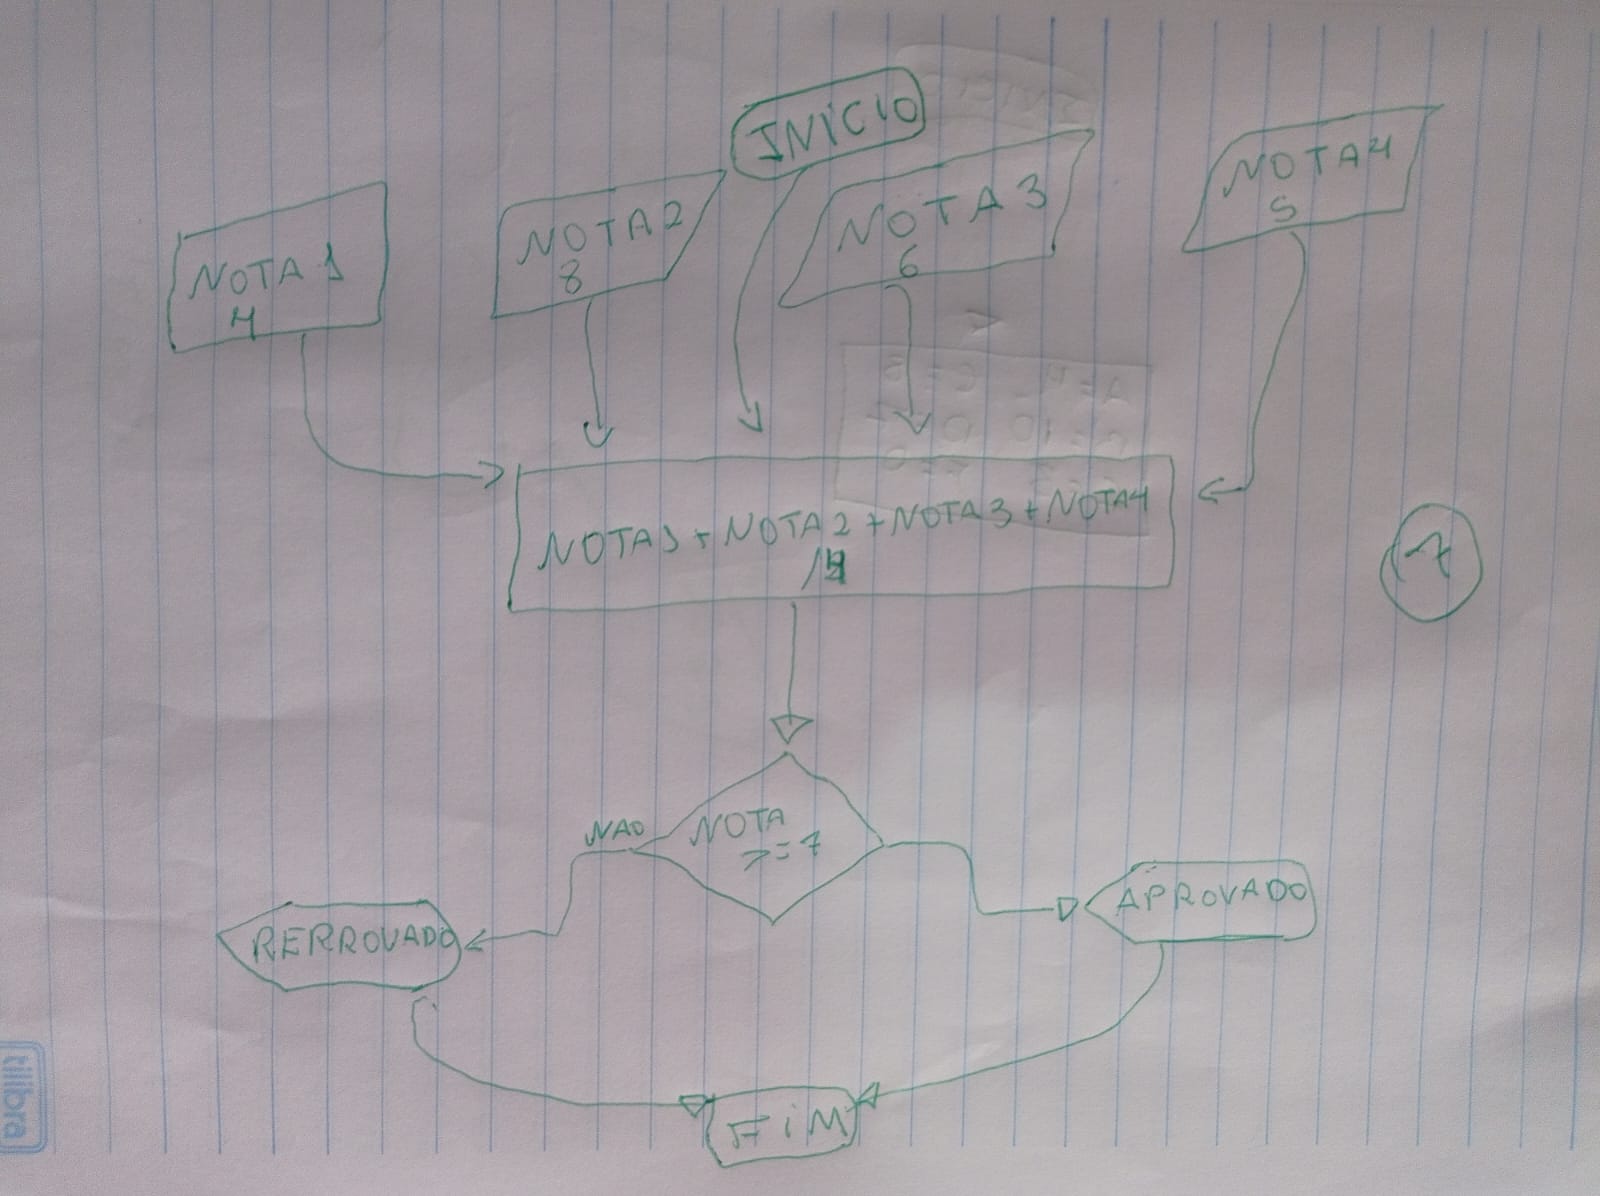 INICIO
NOTA 1
4
NOTA 2
8
NOTA 3
6
NOTA 4
5
NOTA1 + NOTA 2 + NOTA 3 + NOTA4
7
NOTA
>=7
NAO
RERROVADO
APROVADO
FiM
tilibra